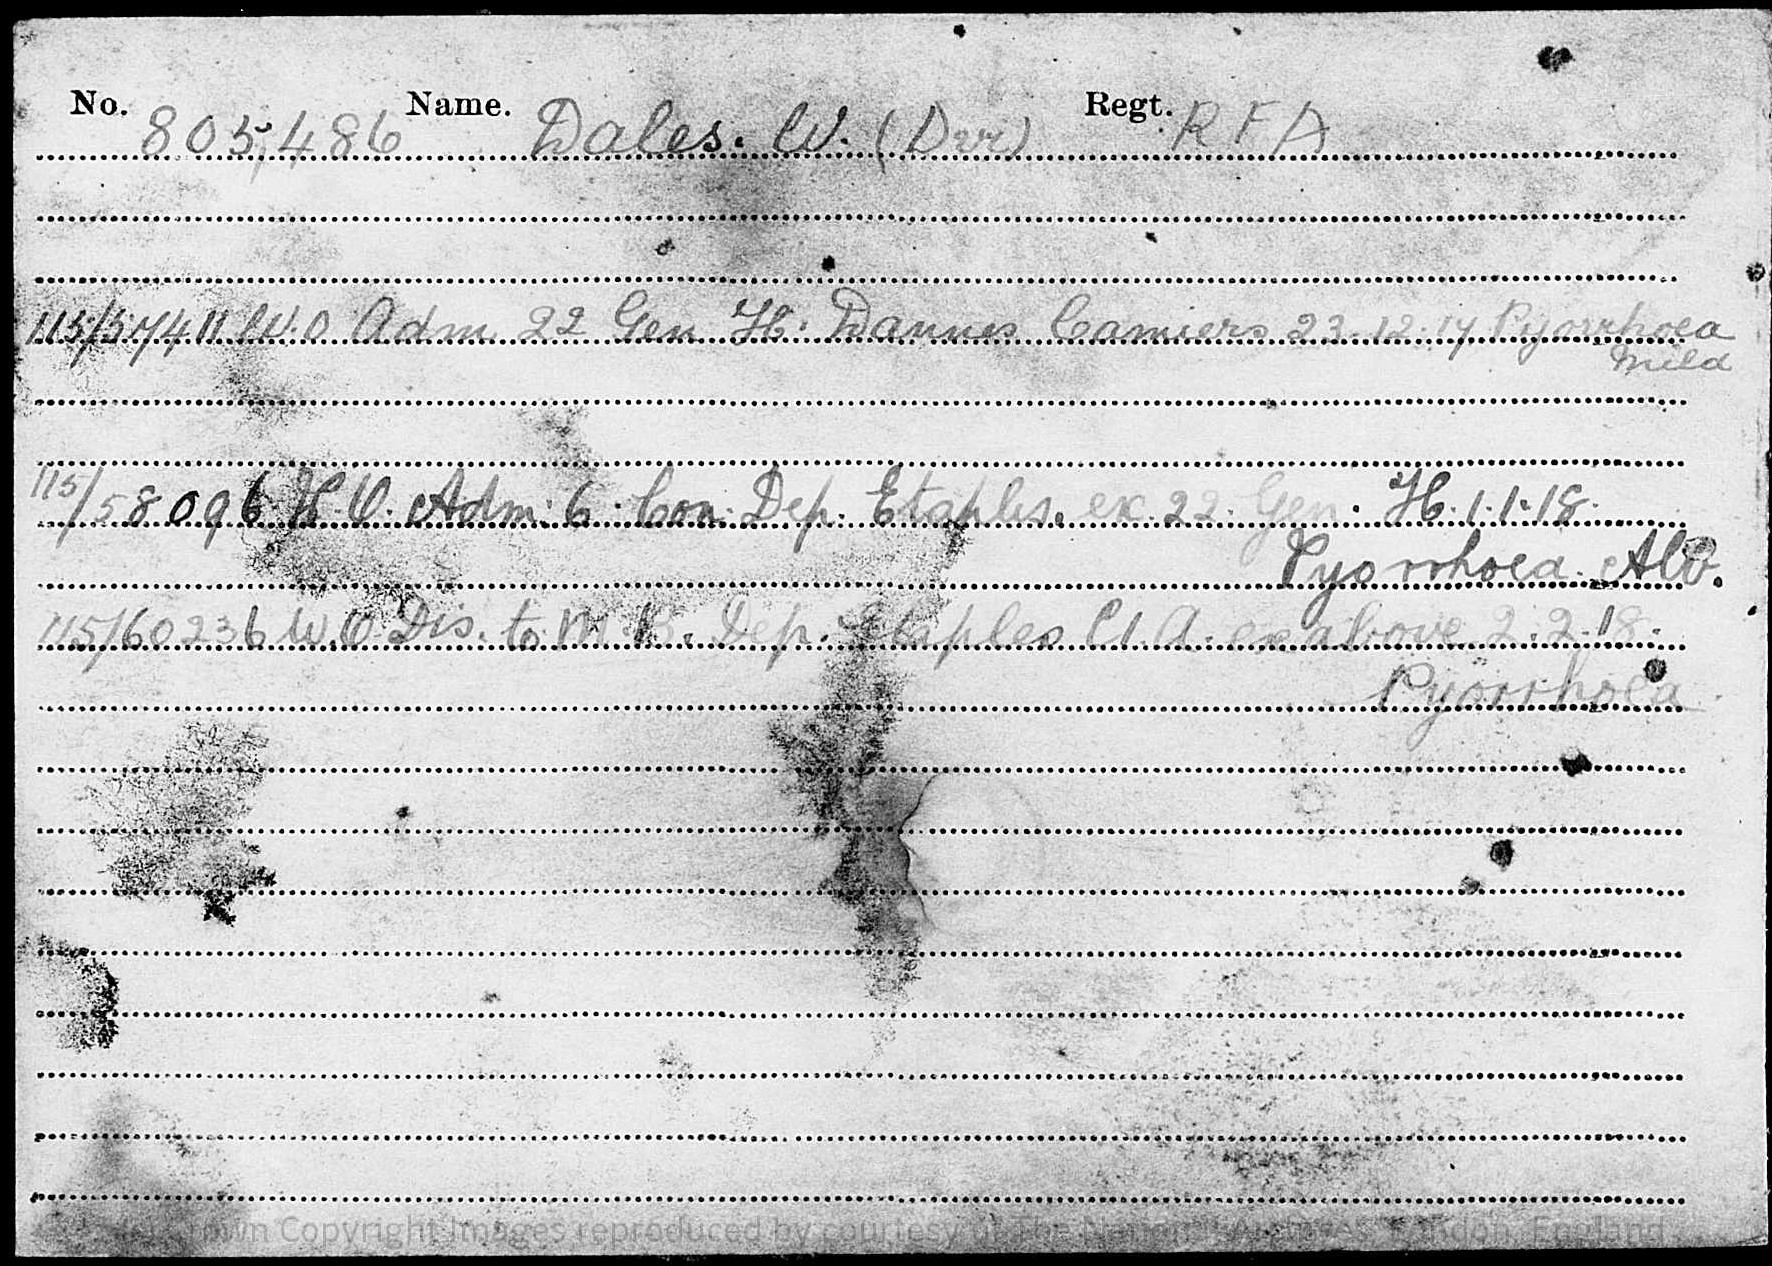 No. 805,486 Name. Dales. W. (Dvr) Regt. R F A
115/57411 W.O Adm 22 Gen H. Dannes Camiers 23.12.17 Pyorrhoea
mild
115/58096 W.O. Adm. 6. Con. Dep. Etaples. ex. 22. Gen. H. 1.1.18.
Pyorrhoea. Alv.
115/60236 W.O Dis. to M.B. Dep. Etaples Cl. A. ex above 2.2.18.
Pyorrhoea
Crown Copyright Images reproduced by courtesy of The National Archives, London, England